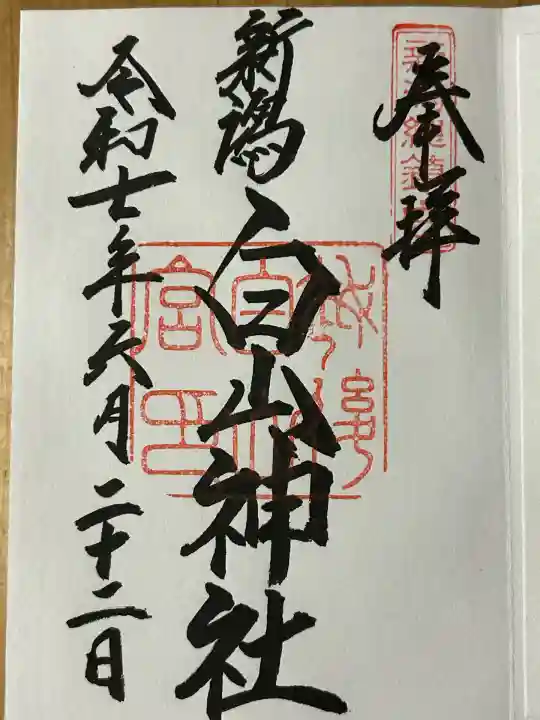 奉拝
新潟総鎮守
新潟
白山神社
令和七年六月二十二日